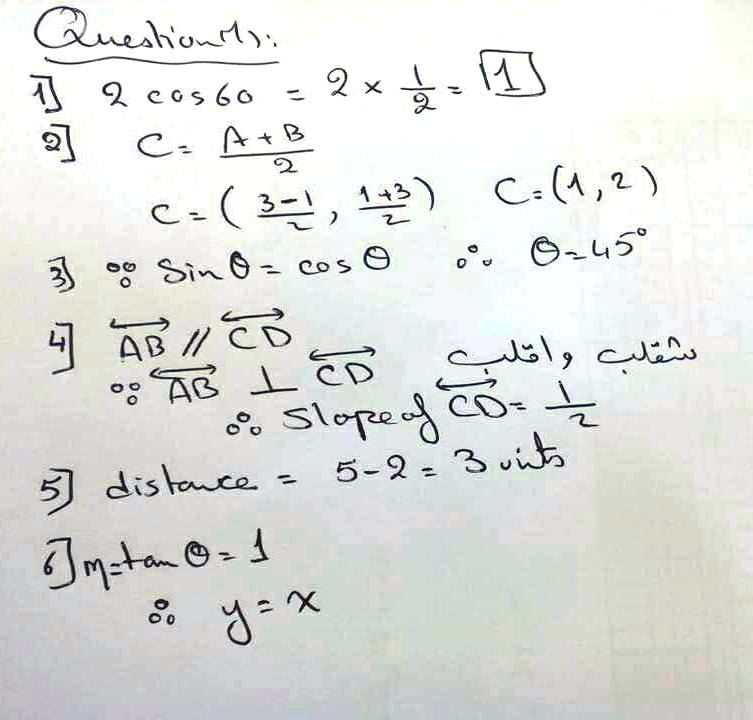 Question(1):
1] 2 cos60 = 2 × 1/2 = 1
2] C = A + B / 2
C = ( 3-1 / 2 , 1+3 / 2 ) C = (1, 2)
3] ∵ Sin θ = cos θ ∴ θ = 45°
4] AB // CD
∵ AB ⊥ CD شقلب واقلب
∴ Slope of CD = 1/2
5] distance = 5 - 2 = 3 units
6] m = tan θ = 1
∴ y = x